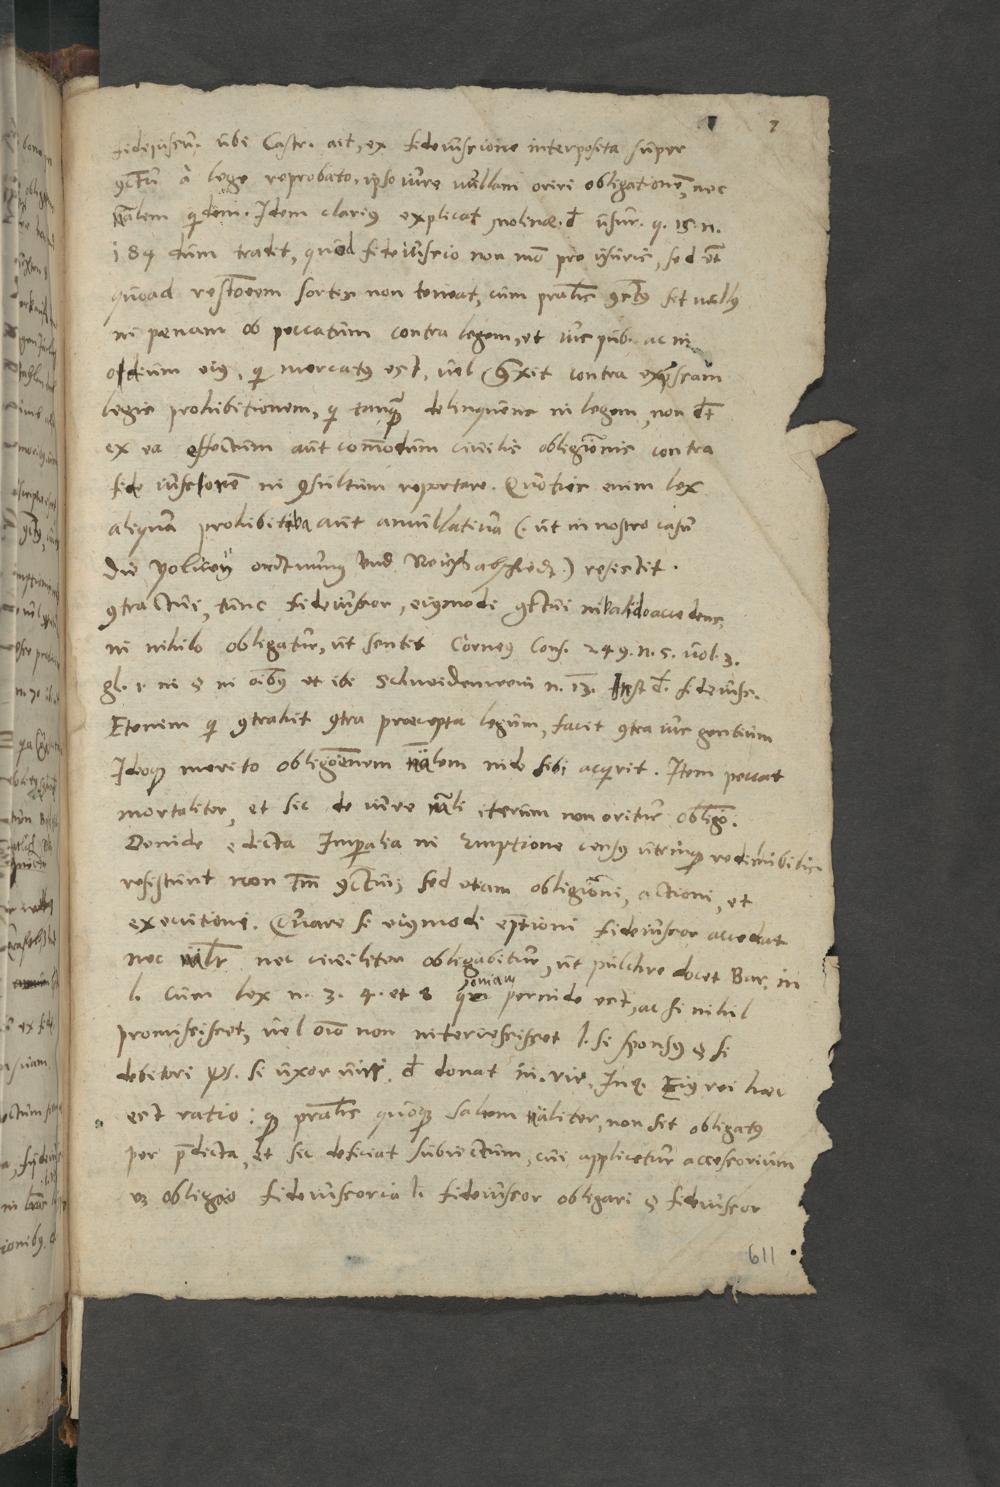 7
fideiusσū. ubi Castr. ait, ex fideiussione interposita super
9ctu à lege reprobato, ipso iure nullam oriri obligationē, nec
nālem qdem. Idem clariꝰ explicat Molinæ. đ usur. q. 15. n.
189 dum tradit, quòd fideiussio non mō pro usuris, sed et
quoad restōem sortis non teneat, cùm prālis 9ctꝰ sit nullꝰ
in pœnam ob peccatum contra legem, et ius pub. ac in
odium eiꝰ, qi mercatꝰ est, vel 9traxit contra expssam
legis prohibitionem, qi tanqꝫ delinquens in legem, non dt
ex ea effectum aut comodum ciuilis obligōnis contra
fideiussorē in 9sultum reportare. Quoties enim lex
aliqua prohibitiua aut annullatiua (: ut in nostro casu
die policey ordtnung und Reichsabschiedt :) resistit
9tractui, tunc fideiussor, eiꝰmodi 9ctui inualido accedens,
in nihilo obligatur, ut sentit Corneꝰ Cons. 249. n. 5. vol. 3.
gl. 1. in § in oibꝰ et ibi Schneidenwein n. 13. Inst đ. fideiuss.
Etenim qi 9trahit 9tra præcepta legum, facit 9tra ius gentium
Ideoqꝫ merito obligōnem nālem inde sibi acqrit. Item peccat
mortaliter, et sic de iure nāli iterum non oritur obligō.
Deinde edicta Imperalia in Emptione censꝰ utrinqꝫ redimibilis
resistunt non tm̄ 9ctui, sed etiam obligōni, actioni, et
executioni. Quare si eiꝰmodi eptioni fideiussor accedat
nec nālr nec ciuiliter obligabitur, ut pulchre docet Bar. in
l. cum lex n. 3. 4. et 8 quoniam perinde est, ac si nihil
promisisset, vel oīo non intercessisset l. si sponsꝰ § si
debitori ꝟs. si uxor viri. đ donat in. vir. Inq. Eiꝰ rei hæc
est ratio: qꝫ prālis quoqꝫ saltem nāliter, non sit obligatꝰ
per p̄dicta, et sic deficiat subiectum, cui applicetur accessorium
vꝫ obligō fideiussoria l. fideiussor obligari § fideiussor
611